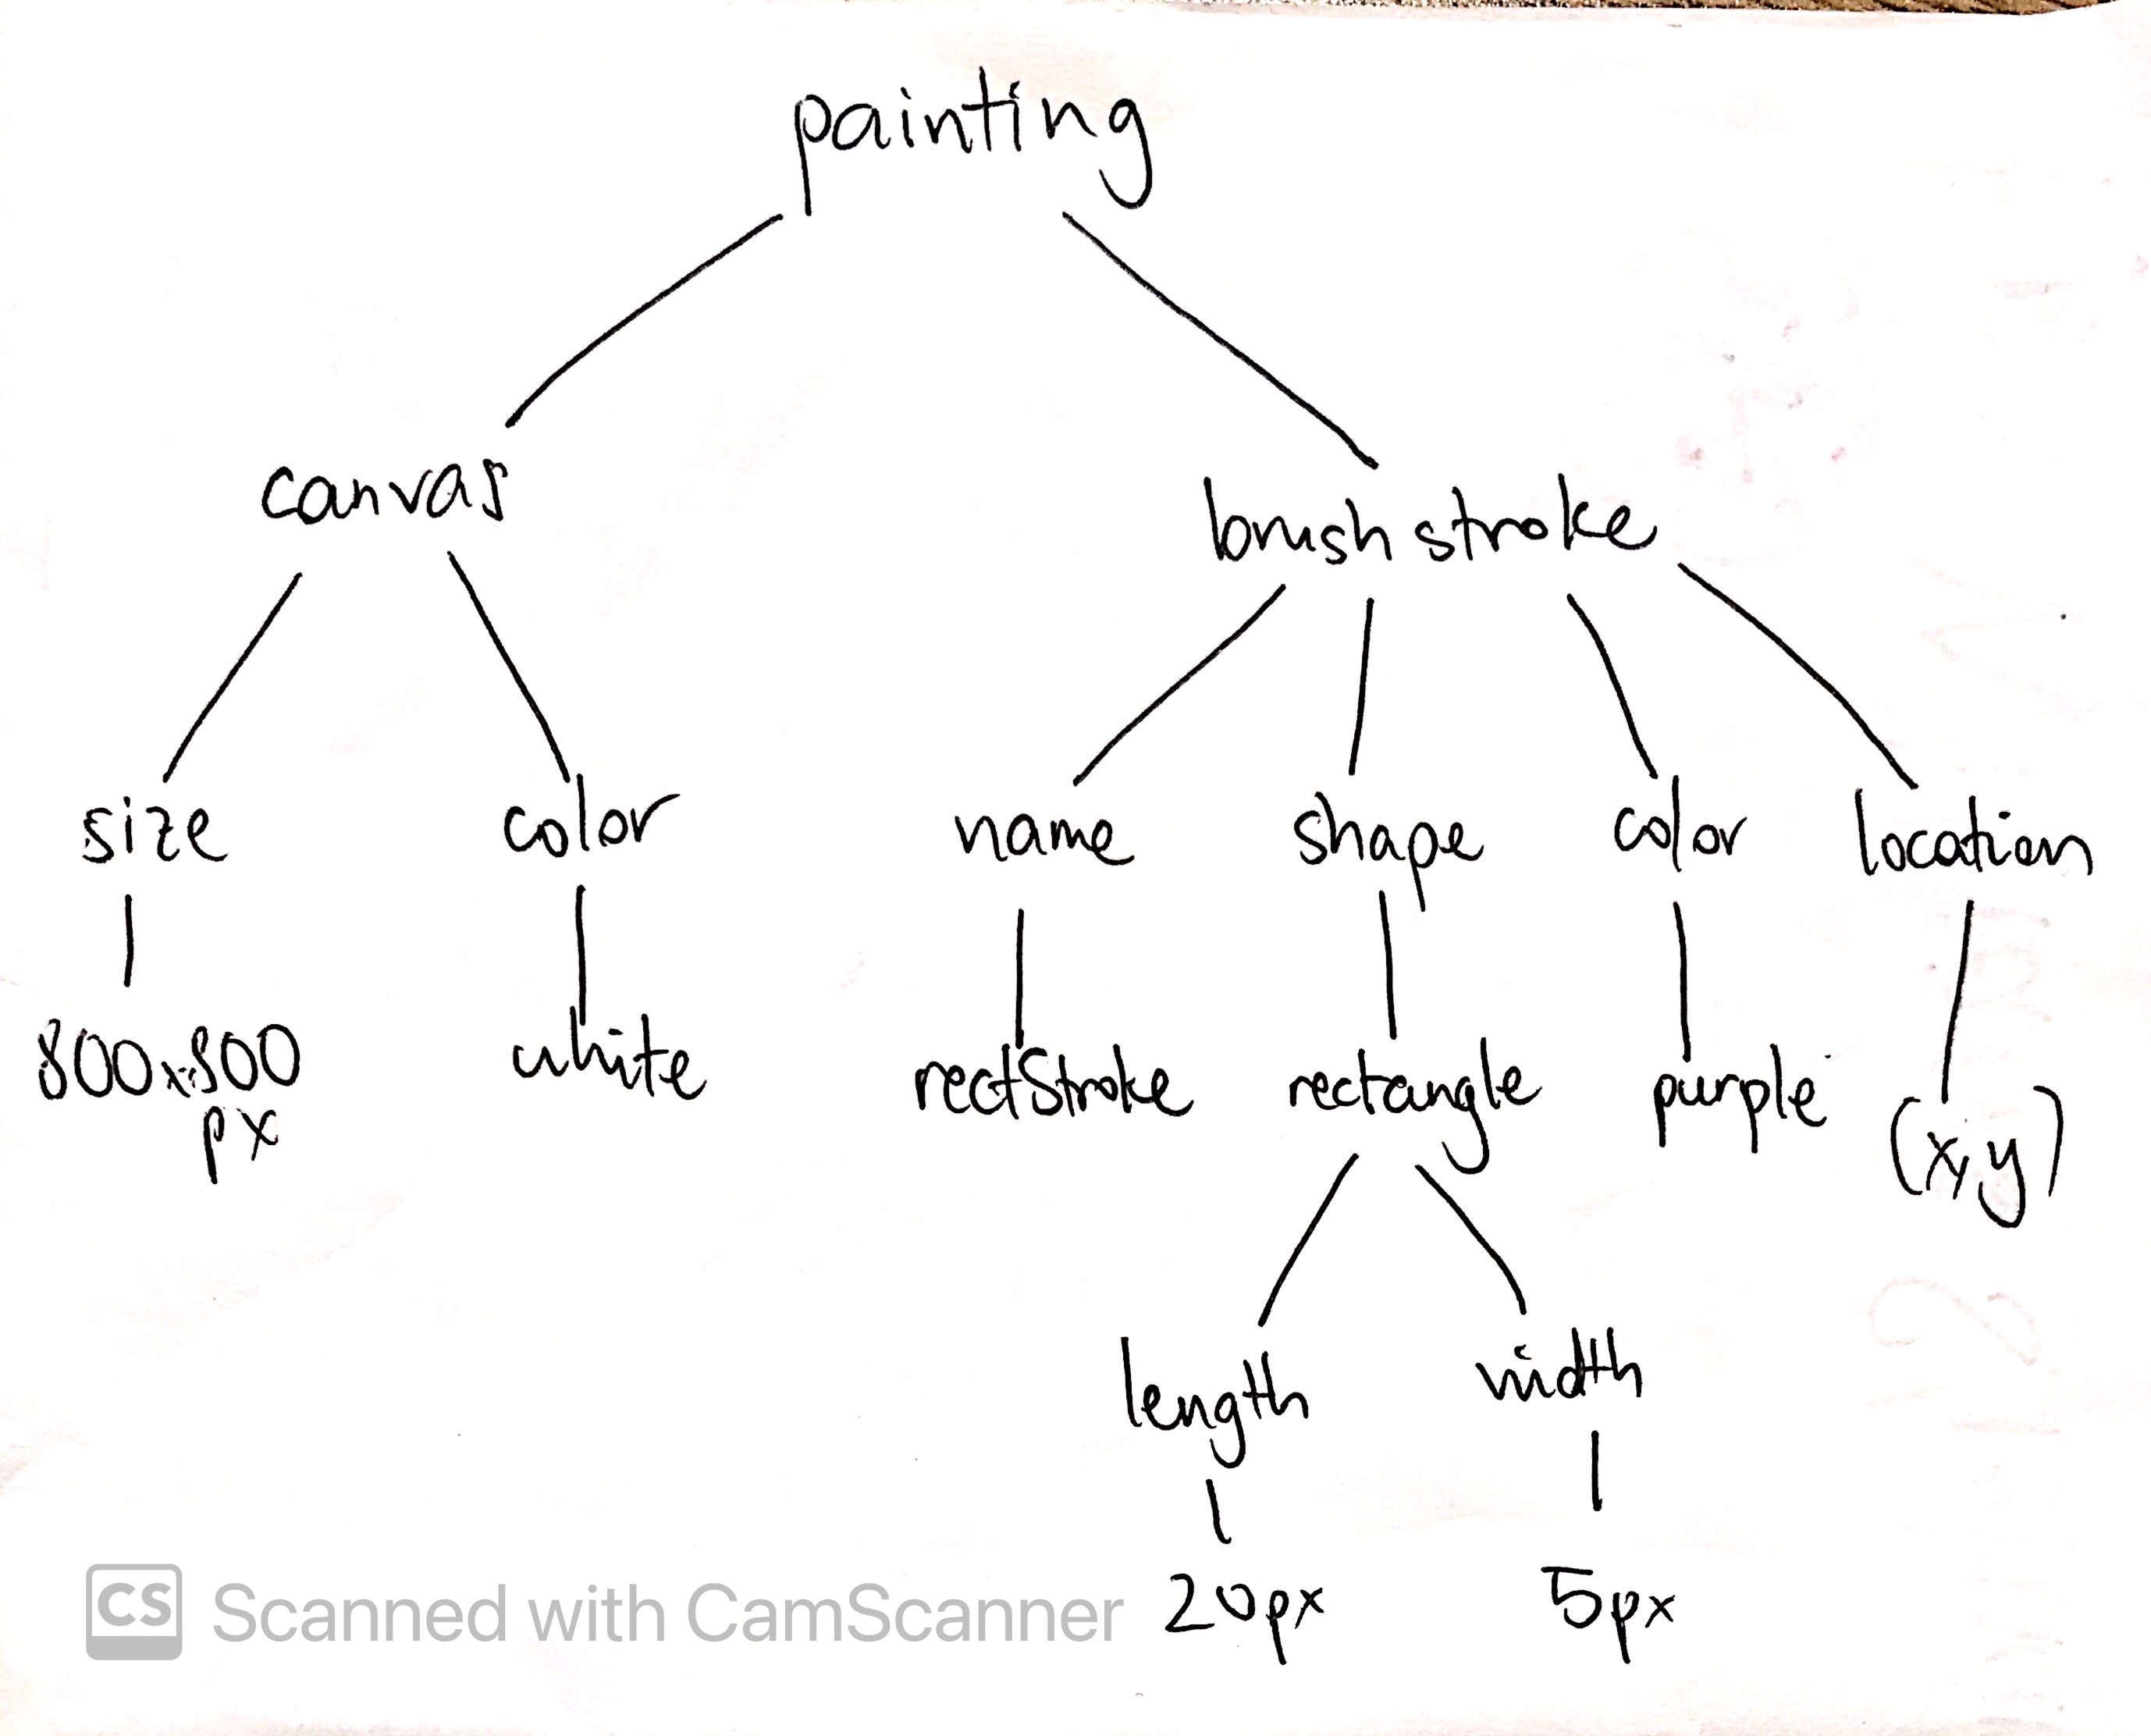 painting
canvas brush stroke
size color name shape color location
800x800 white rectStroke rectangle purple (x,y)
px
length width
20px 5px
CS Scanned with CamScanner